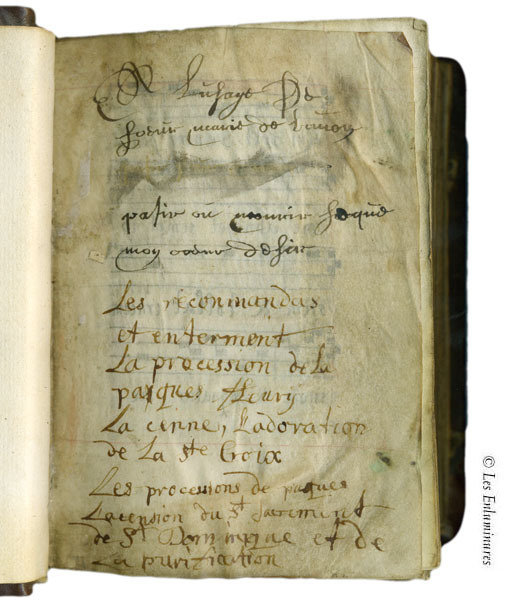 A Lusage De
Soeur marie de
patir ou mourir se que
mon coeur desir
Les recommandas
et enterment
La procession de la
pasques fleury
La cenne, Ladoration
de La Ste Croix
Les processions de pasques
Lacension du St sacrement
de St Dominque et de
La purification
© Les Enluminures